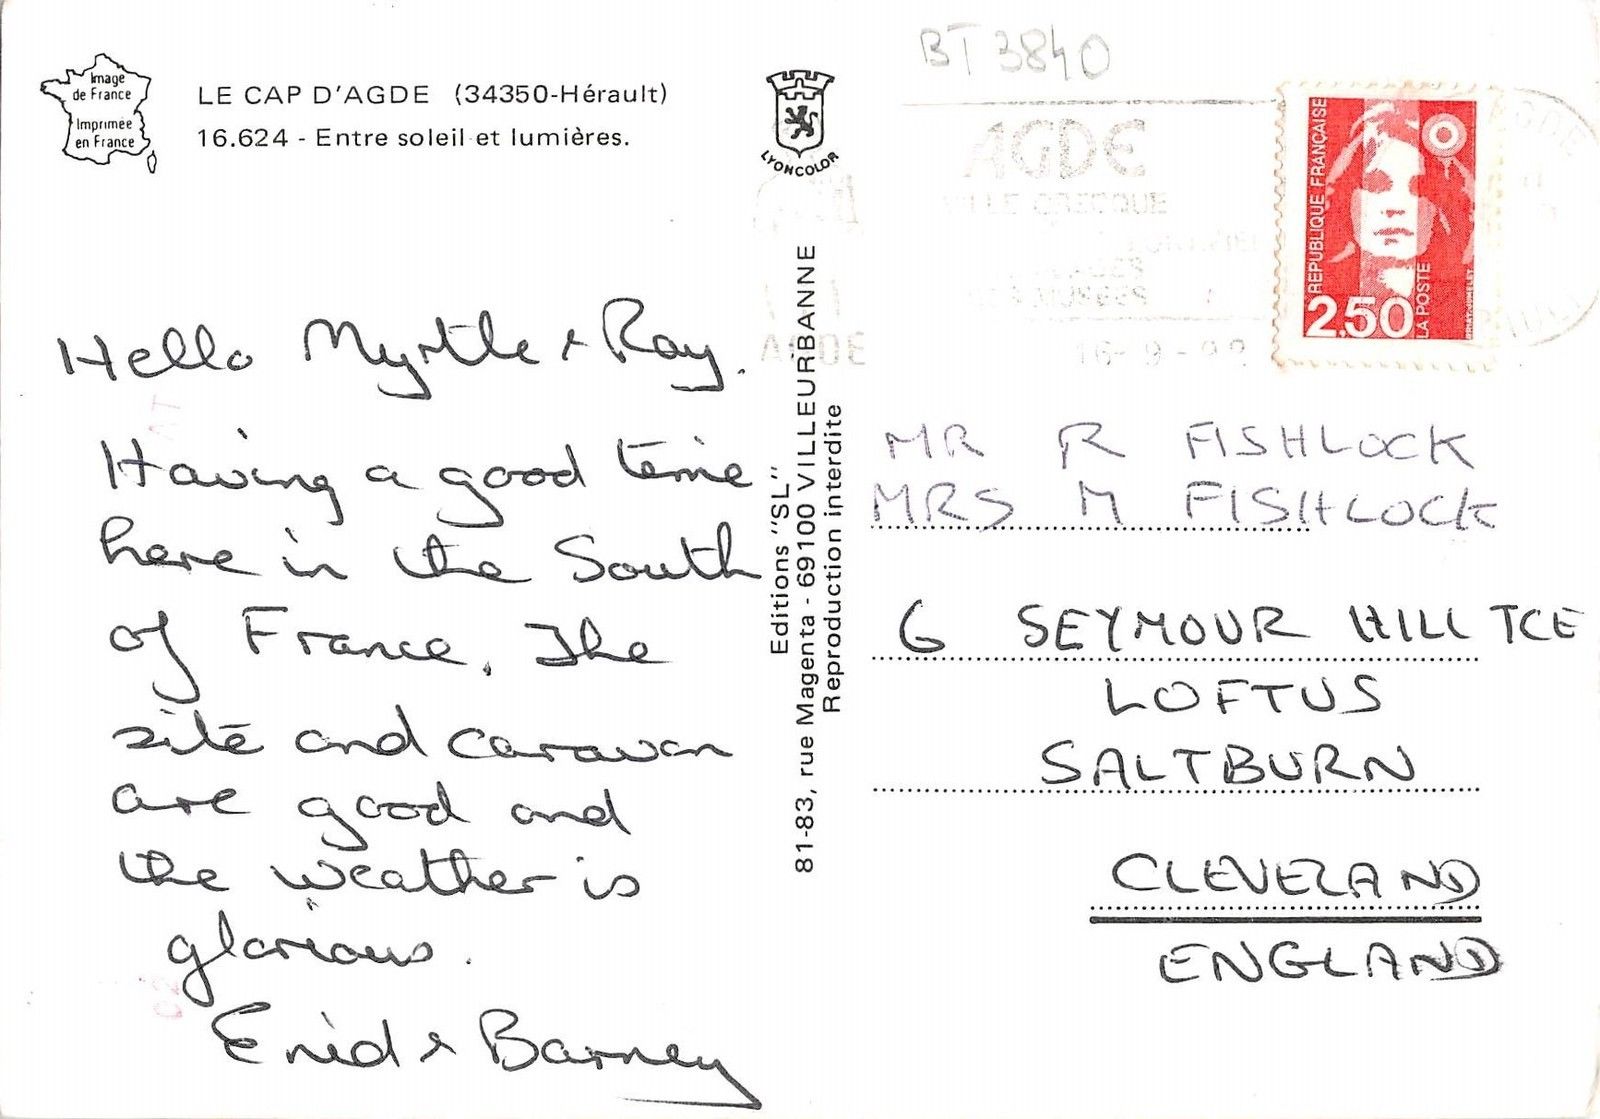 BT 3840
Image
de France
Imprimée
en France
LE CAP D'AGDE (34350-Hérault)
16.624 - Entre soleil et lumières.
LYONCOLOR
AGDE
VILLE GRECQUE
AGDE
16-9-
REPUBLIQUE FRANÇAISE
2,50
LA POSTE
Hello Myrtle & Ray.
Having a good time
here in the South
of France. The
site and caravan
are good and
the weather is
glorious.
Enid & Barney
Editions "SL"
81-83, rue Magenta - 69100 VILLEURBANNE
Reproduction interdite
MR R FISHLOCK
MRS M FISHLOCK
6 SEYMOUR HILL TCE
LOFTUS
SALTBURN
CLEVELAND
ENGLAND